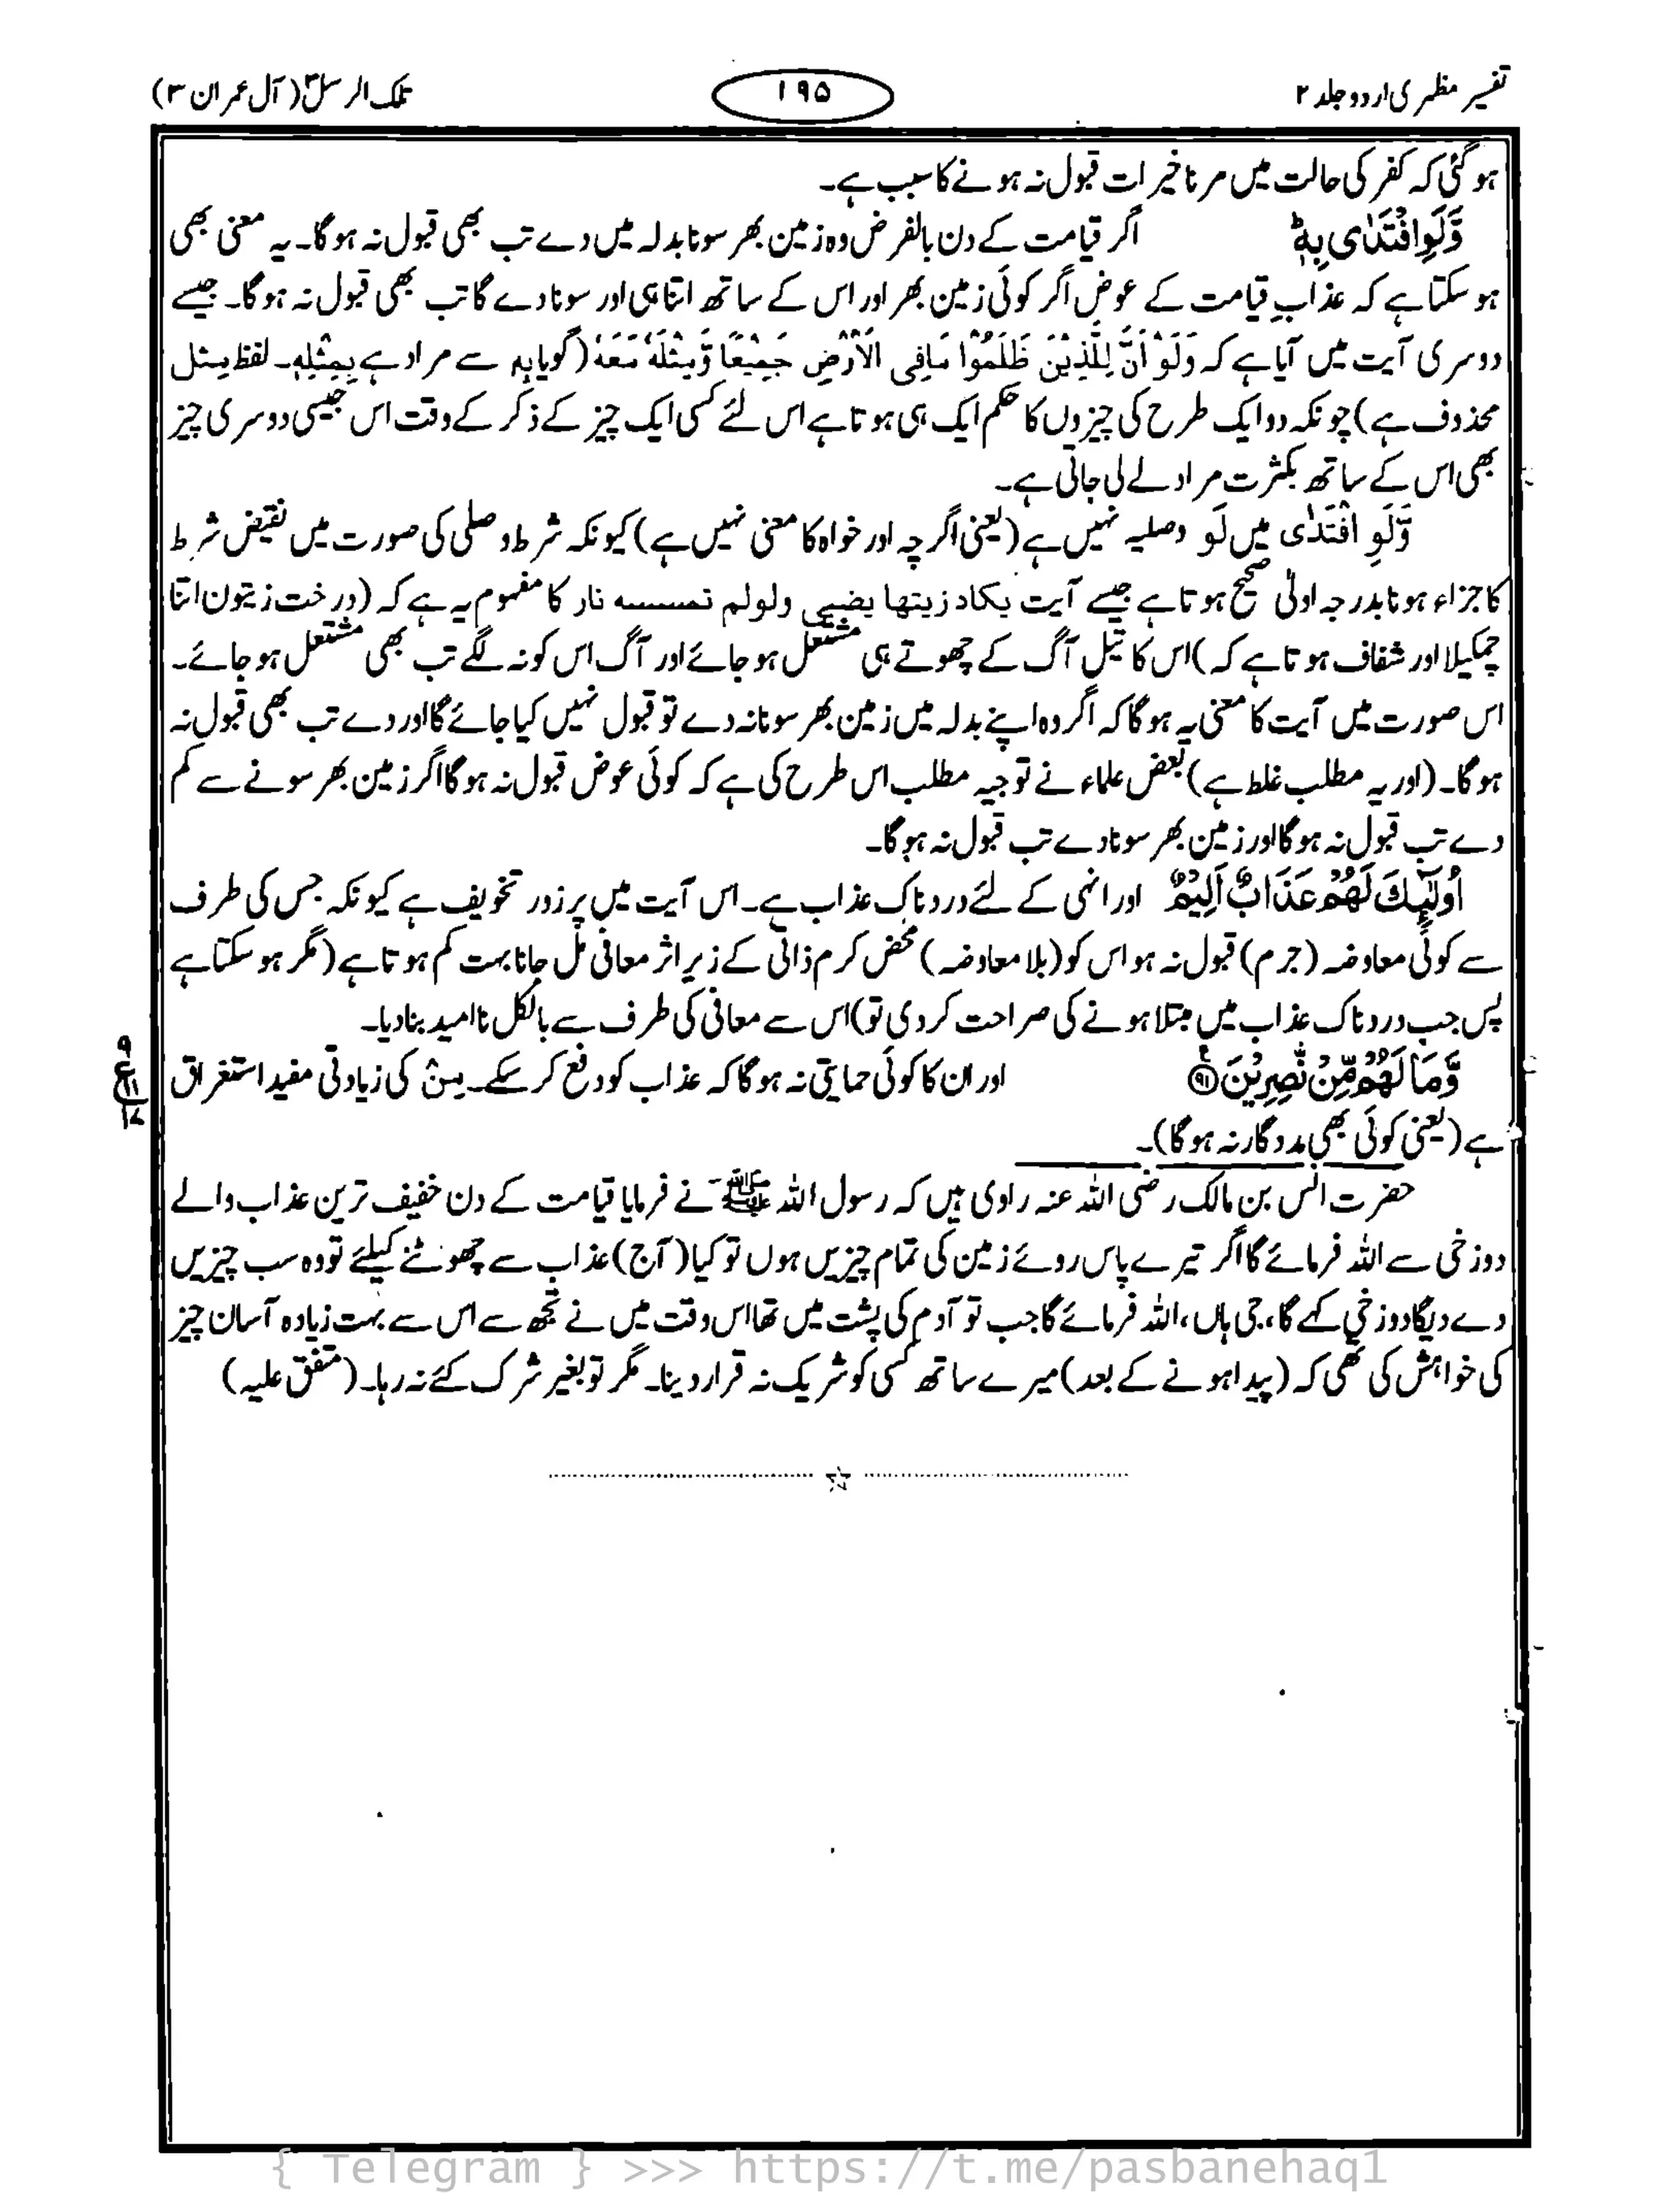 تفسیر مظہری اردو جلد ۲
۱۹۵
تلک الرسل (آل عمران ۳)
ہو گئی کہ کفر کی حالت میں مرنا خیرات قبول نہ ہونے کا سبب ہے۔
وَّلَوِ افْتَدٰى بِهٖ ؕ اگر قیامت کے دن بالفرض وہ زمین بھر سونا بدلہ میں دے تب بھی قبول نہ ہوگا۔ یہ معنی بھی
ہو سکتا ہے کہ عذابِ قیامت کے عوض اگر کوئی زمین بھر اور اس کے ساتھ اتنا ہی اور سونا دے گا تب بھی قبول نہ ہوگا۔ جیسے
دوسری آیت میں آیا ہے کہ وَلَوْ اَنَّ لِلَّذِیْنَ ظَلَمُوْا مَافِی الْاَرْضِ جَمِیْعًا وَّمِثْلَهٗ مَعَهٗ (گویا بِہٖ سے مراد ہے بِمِثْلِہٖ۔ لفظ مثل
محذوف ہے) چونکہ دو ایک طرح کی چیزوں کا حکم ایک ہی ہوتا ہے اس لئے کسی ایک چیز کے ذکر کے وقت اس جیسی دوسری چیز
بھی اس کے ساتھ بکثرت مراد لے لی جاتی ہے۔
وَّلَوِ افْتَدٰی میں لَو وصلیہ نہیں ہے (یعنی اگرچہ اور خواہ کا معنی نہیں ہے) کیونکہ شرط وصلی کی صورت میں نقیض شرط
کا جزاء ہونا بدرجہ اولیٰ صحیح ہوتا ہے جیسے آیت یکاد زیتها یضیی ولولم تمسسه نار کا مفہوم یہ ہے کہ (درخت زیتون اتنا
چمکیلا اور شفاف ہوتا ہے کہ) اس کا تیل آگ کے چھوتے ہی مشتعل ہو جائے اور آگ اس کو نہ لگے تب بھی مشتعل ہو جائے۔
اس صورت میں آیت کا معنی یہ ہوگا کہ اگر وہ اپنے بدلہ میں زمین بھر سونا نہ دے تو قبول نہیں کیا جائے گا اور دے تب بھی قبول نہ
ہوگا۔ (اور یہ مطلب غلط ہے) بعض علماء نے توجیہ مطلب اس طرح کی ہے کہ کوئی عوض قبول نہ ہوگا اگر زمین بھر سونے سے کم
دے تب قبول نہ ہوگا اور زمین بھر سونا دے تب قبول نہ ہوگا۔
اُولٰٓئِكَ لَهُمْ عَذَابٌ اَلِیْمٌ اور انہی کے لئے دردناک عذاب ہے۔ اس آیت میں پر زور تخویف ہے کیونکہ جس کی طرف
سے کوئی معاوضہ (جرم) قبول نہ ہو اس کو (بلا معاوضہ) محض کرم ذاتی کے زیر اثر معافی مل جانا بہت کم ہوتا ہے (مگر ہو سکتا ہے
پس جب دردناک عذاب میں مبتلا ہونے کی صراحت کر دی تو) اس سے معافی کی طرف سے بالکل ناامید بنا دیا۔
وَّمَا لَهُمْ مِّنْ نّٰصِرِیْنَ ۹۱ اور ان کا کوئی حمایتی نہ ہوگا کہ عذاب کو دفع کر سکے۔ مِنْ کی زیادتی مفید استغراق
ہے (یعنی کوئی بھی مددگار نہ ہوگا)۔
حضرت انس بن مالک رضی اللہ عنہ راوی ہیں کہ رسول اللہ ﷺ نے فرمایا قیامت کے دن خفیف ترین عذاب والے
دوزخی سے اللہ فرمائے گا اگر تیرے پاس روئے زمین کی تمام چیزیں ہوں تو کیا (آج) عذاب سے چھوٹنے کیلئے تو وہ سب چیزیں
دے دیگا دوزخی کہے گا، جی ہاں، اللہ فرمائے گا جب تو آدم کی پشت میں تھا اس وقت میں نے تجھ سے اس سے بہت زیادہ آسان چیز
کی خواہش کی تھی کہ (پیدا ہونے کے بعد) میرے ساتھ کسی کو شریک نہ قرار دینا۔ مگر تو بغیر شرک کئے نہ رہا۔ (متفق علیہ)
{ Telegram } >>> https://t.me/pasbanehaq1